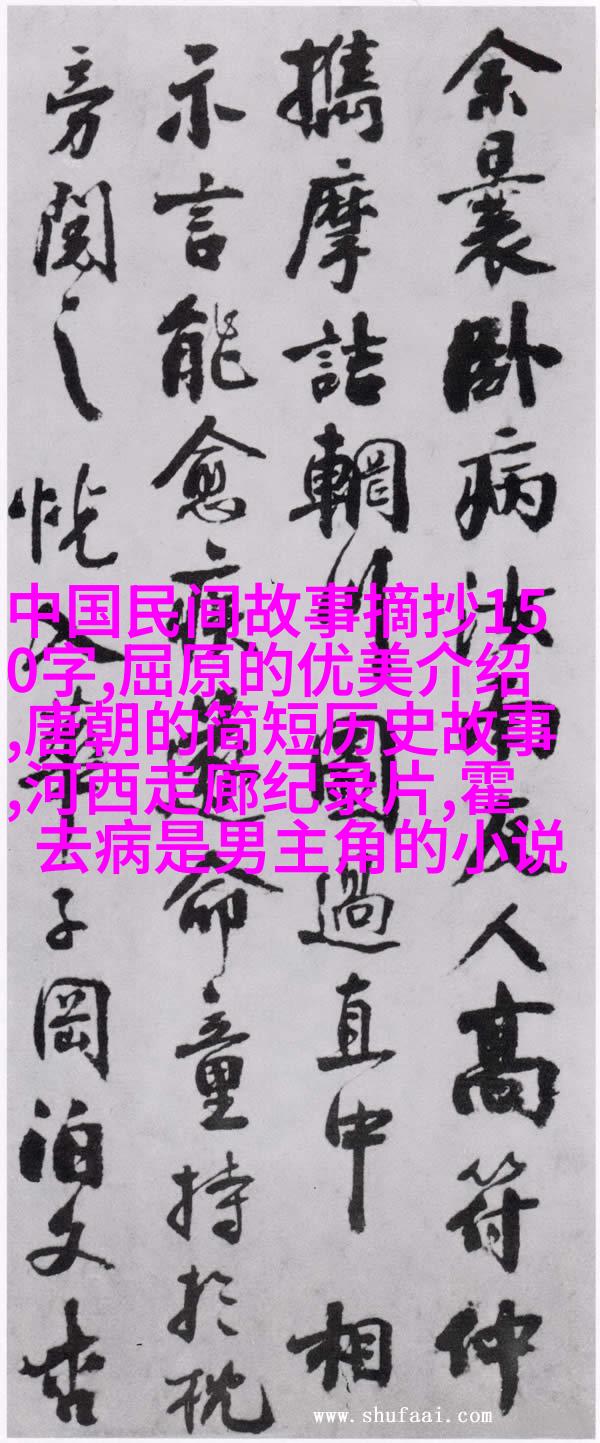 余曩卧病汝南友人高符仲
攜摩詰輞川圖過直中相
示言能愈疾遂命童持於枕
旁閱之恍入華子岡泊文杏
中国民间故事摘抄15
0字,屈原的优美介绍
,唐朝的简短历史故事
,河西走廊纪录片,霍
去病是男主角的小说
www.shufaai.com